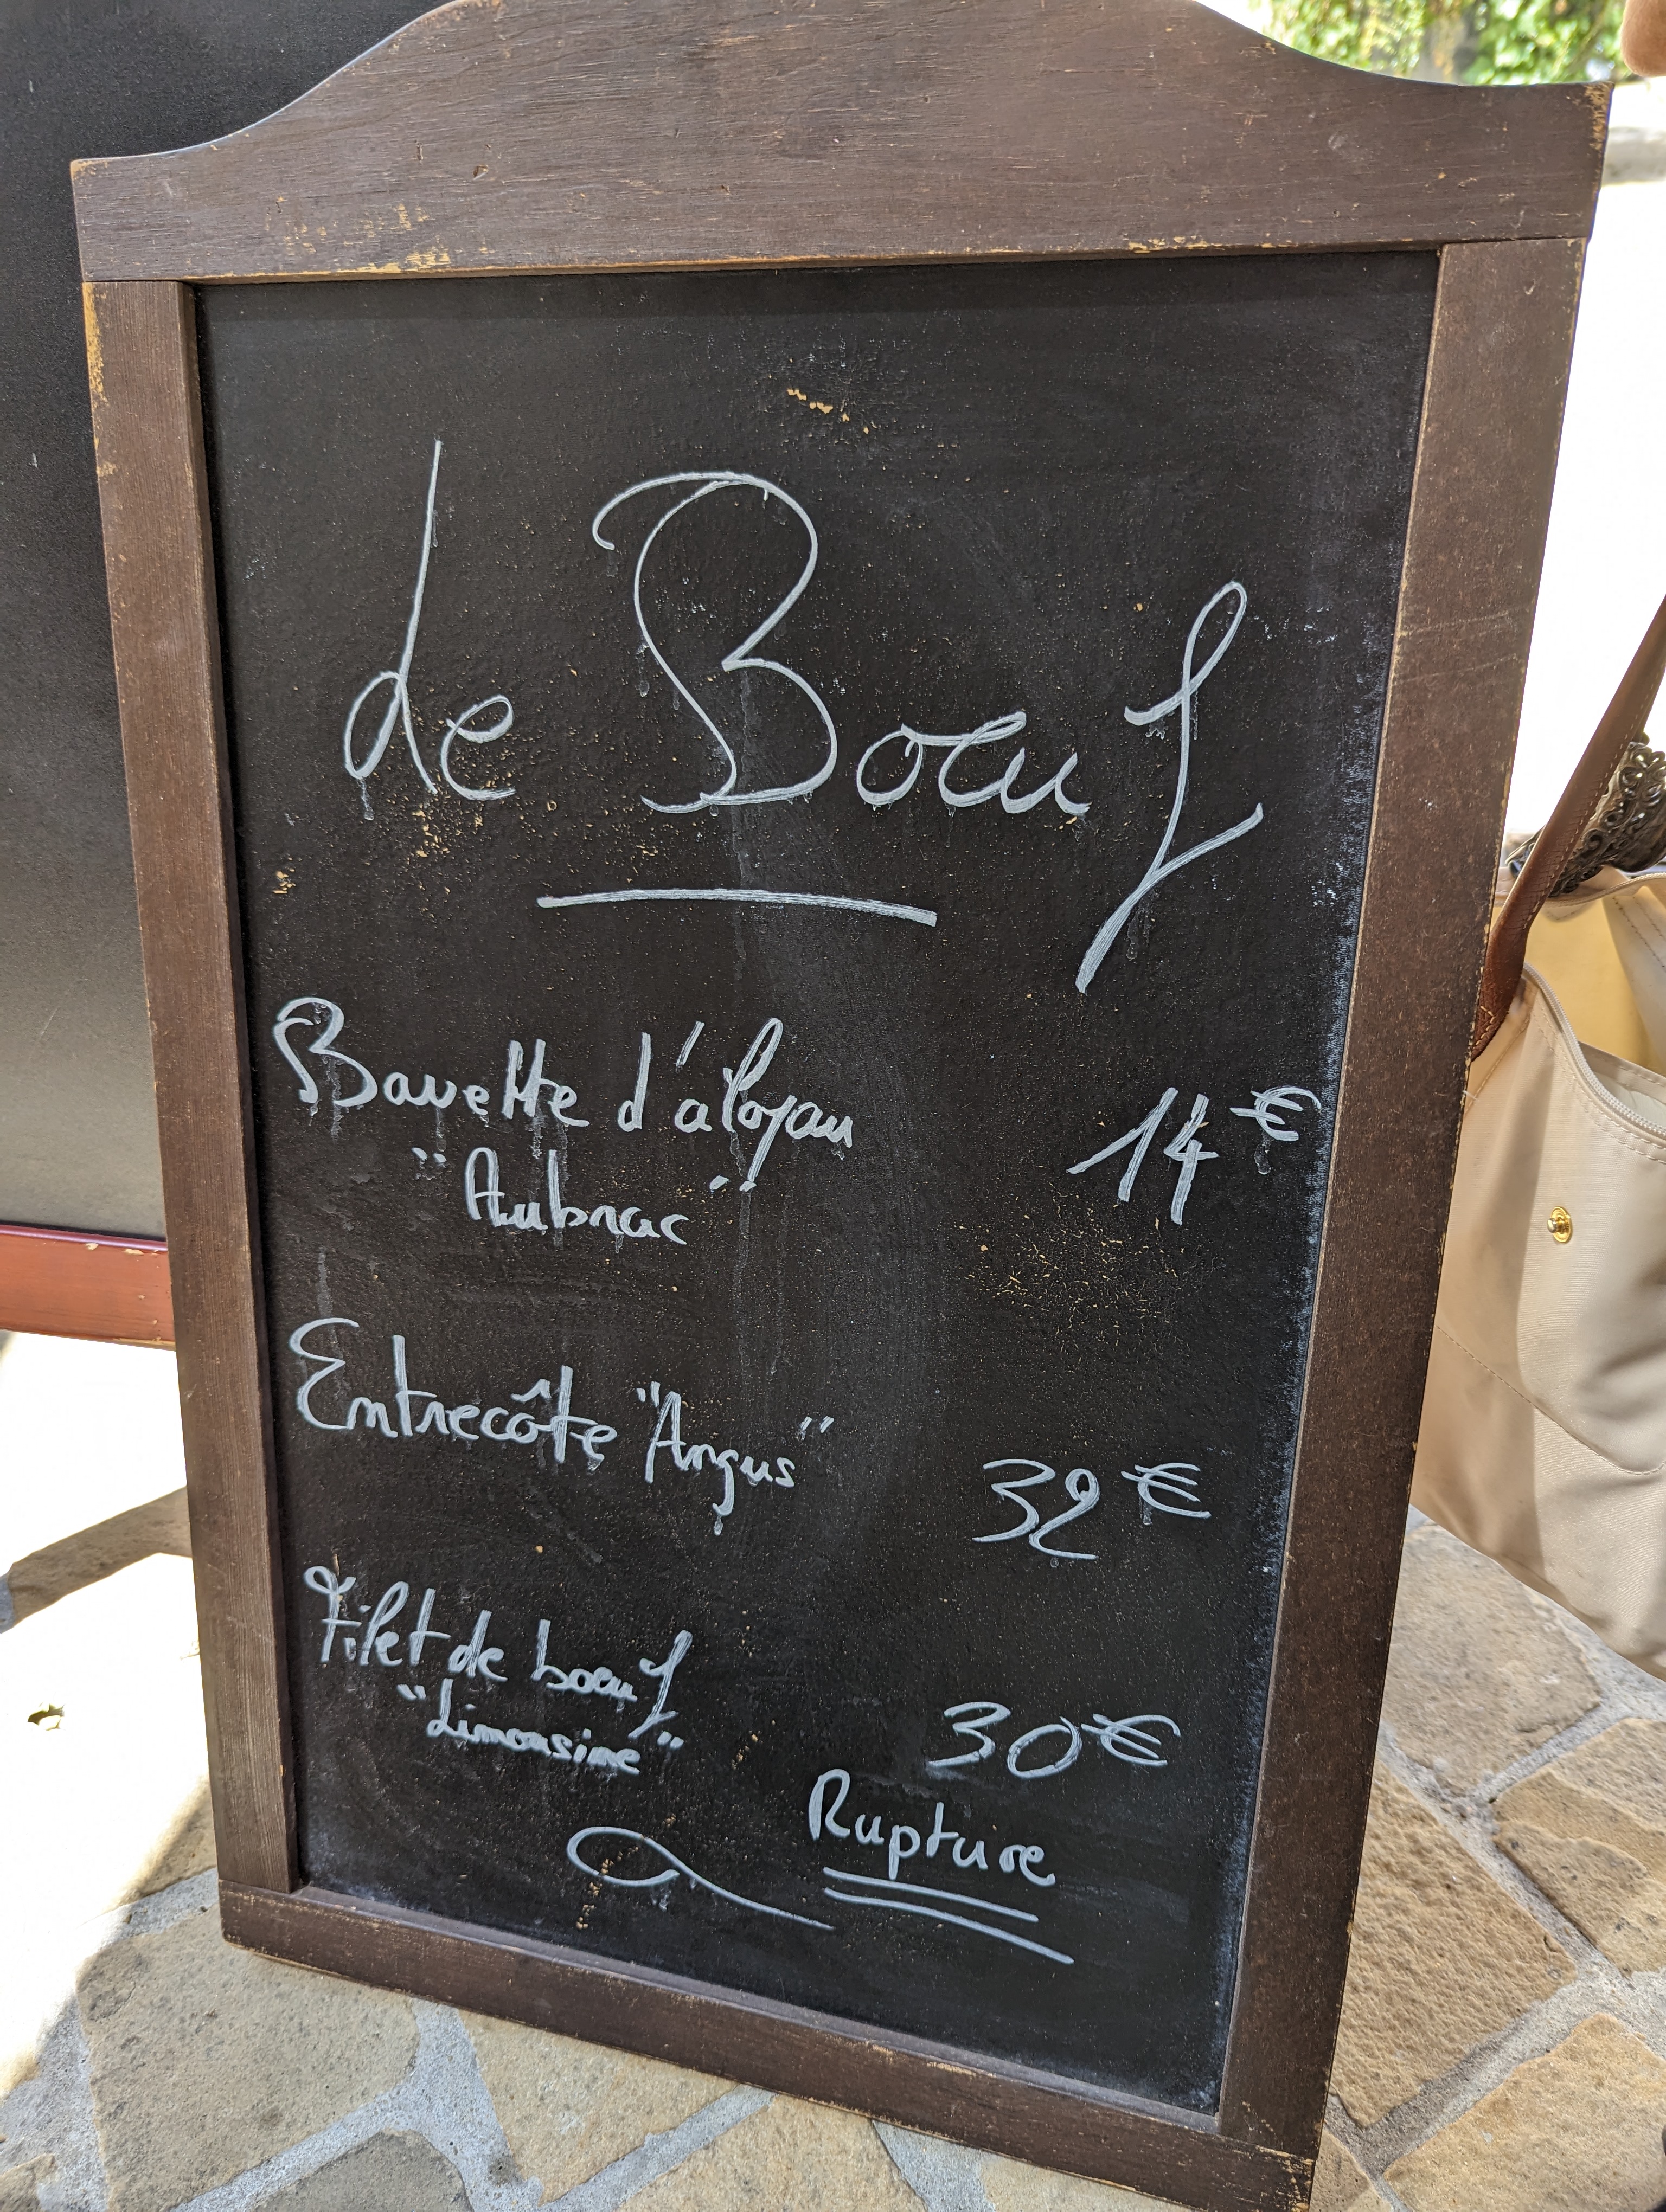 de Boeuf
Bavette d'aloyau 14€
"Aubrac"
Entrecôte "Angus" 32€
Filet de boeuf
"Limousine" 30€
Rupture